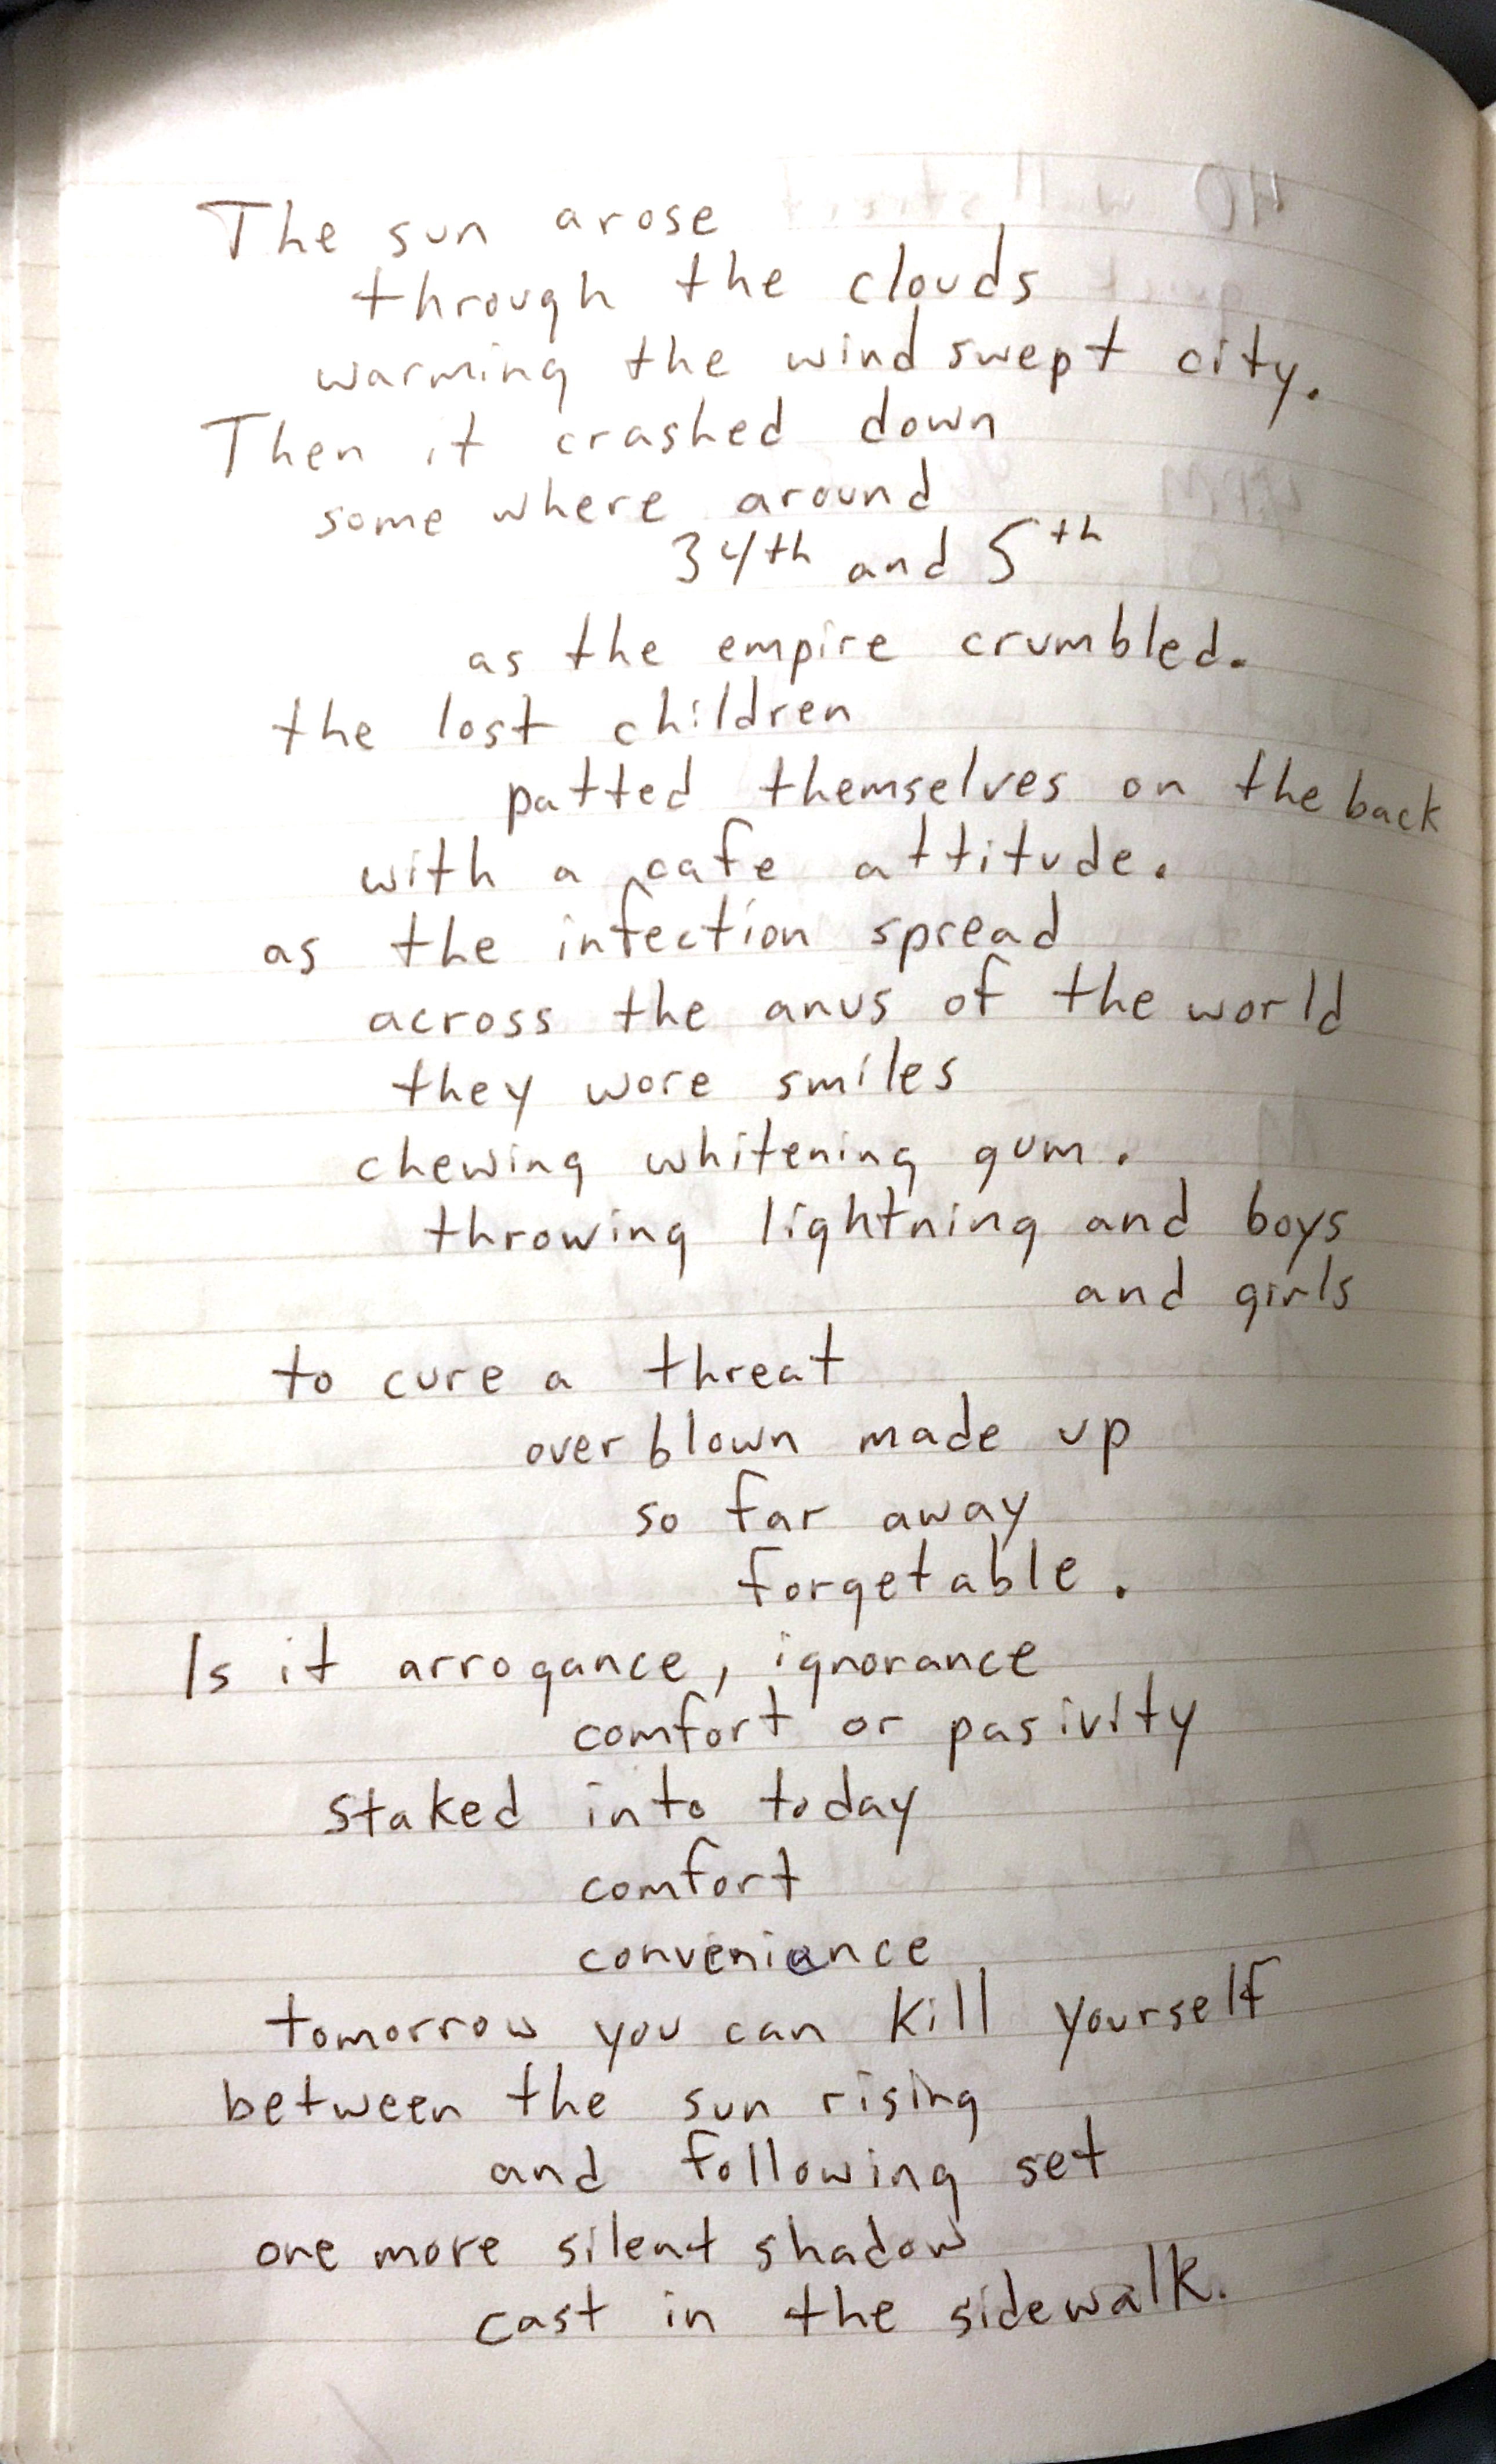 The sun arose
through the clouds
warming the wind swept city.
Then it crashed down
some where around
34th and 5th
as the empire crumbled.
the lost children
patted themselves on the back
with a cafe attitude.
as the infection spread
across the anus of the world
they wore smiles
chewing whitening gum.
throwing lightning and boys
and girls
to cure a threat
over blown made up
so far away
forgetable.
Is it arrogance, ignorance
comfort or pasivity
staked into today
comfort
conveniance
tomorrow you can kill yourself
between the sun rising
and following set
one more silent shadow
cast in the sidewalk.